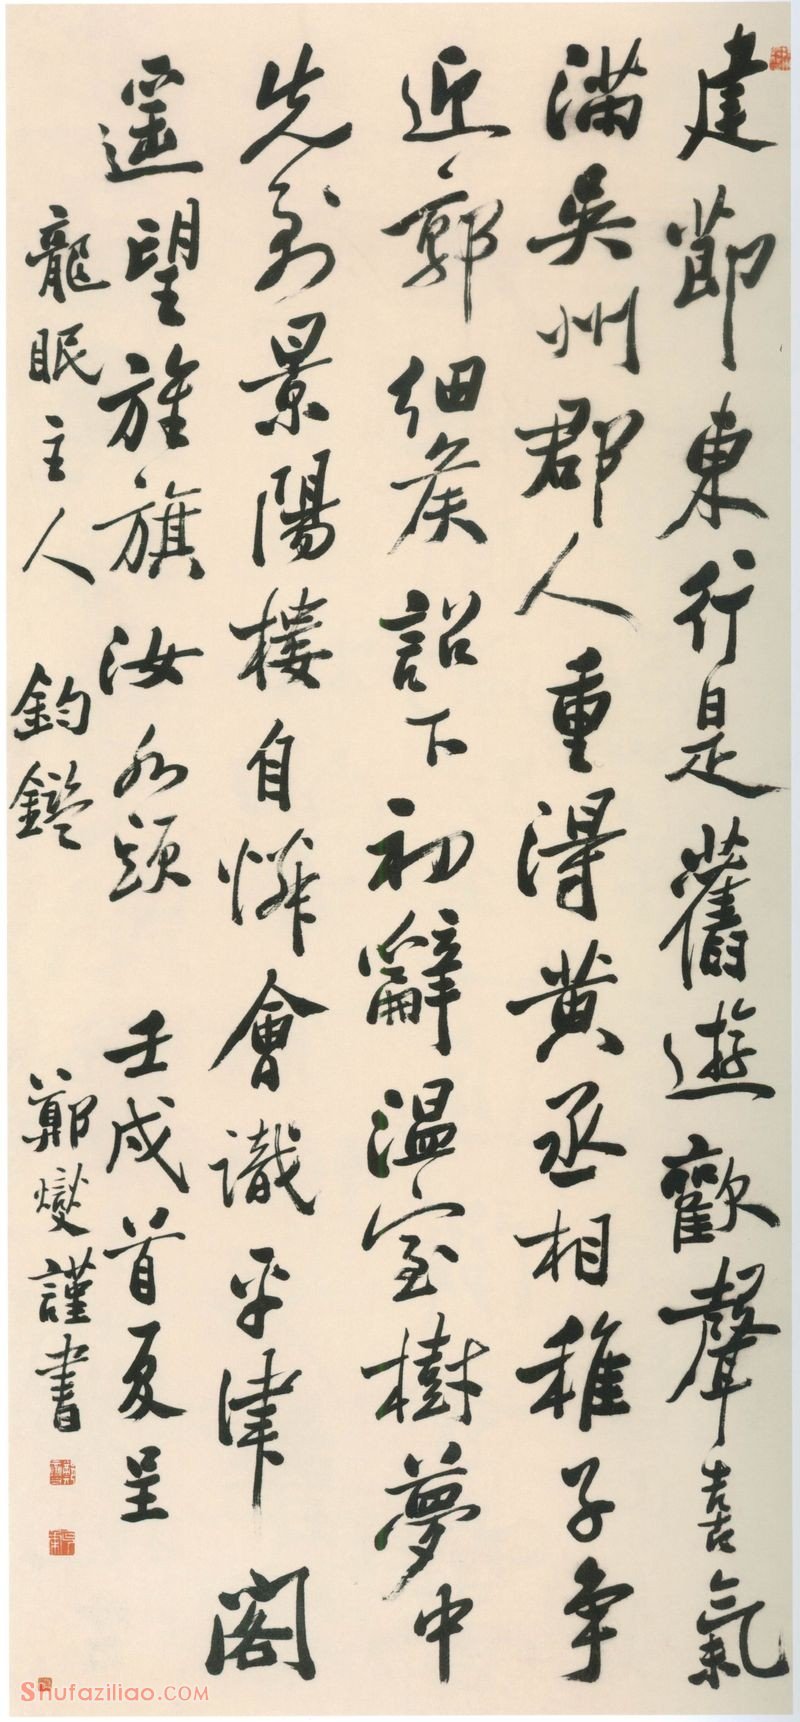 建節東行是舊遊歡聲喜氣
滿吳州郡人重得黃丞相稚子爭
近郭細侯詔下初辭溫室樹夢中
先到景陽樓自憐曾識平津閣
遥望旌旗汝水頭 壬戌首夏呈
龍眠主人 鈞鑑 鄭燮謹書
Shufaziliao.COM